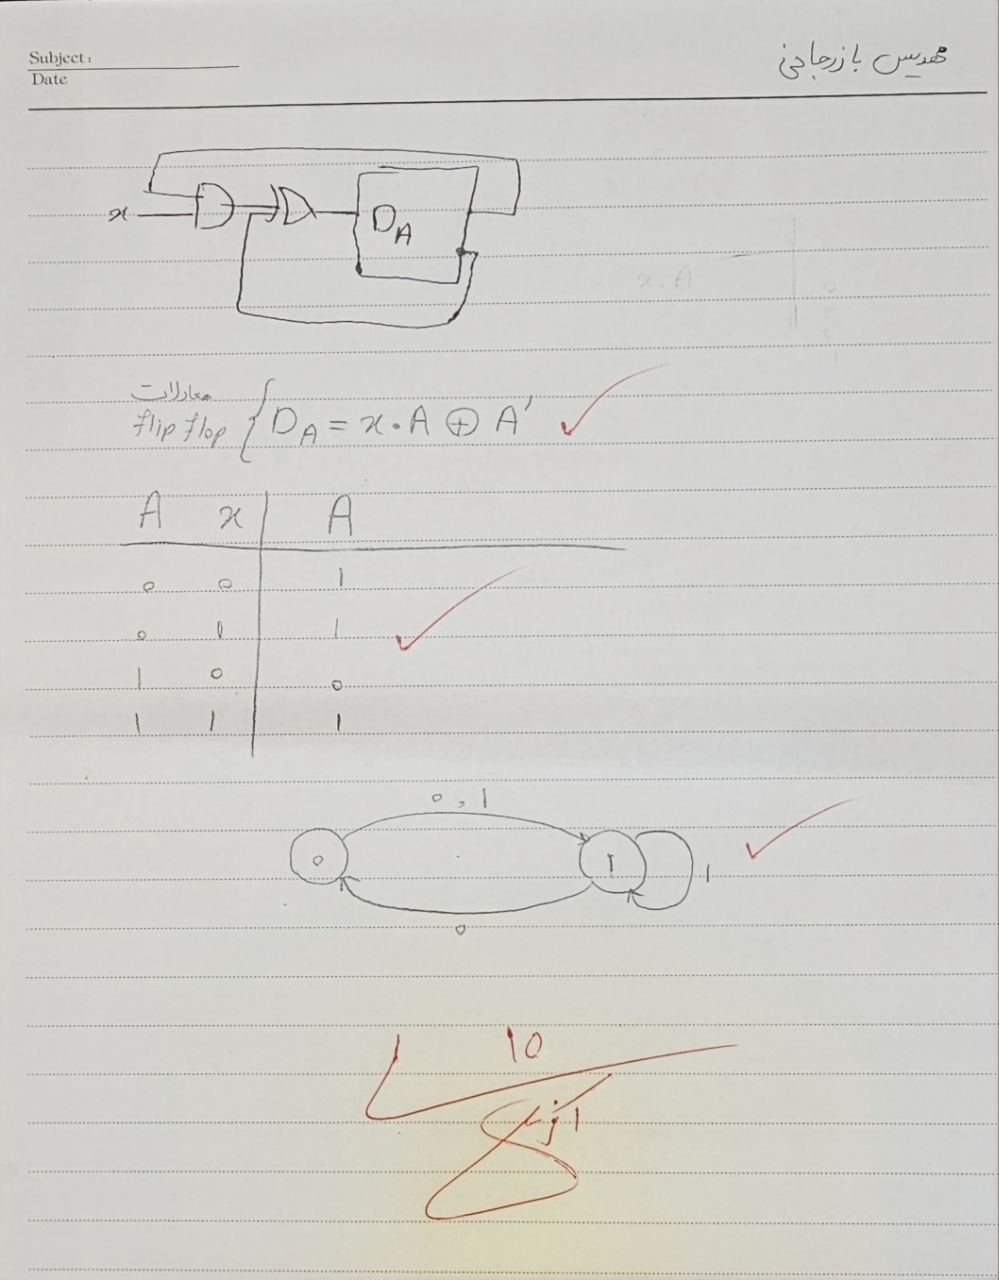 Subject:
Date
مهدیس بازرجانی
x
D_A
معادلات
flip flop { D_A = x · A ⊕ A'
A x | A
0 0 | 1
0 1 | 1
1 0 | 0
1 1 | 1
0, 1
0 1 1
0
10